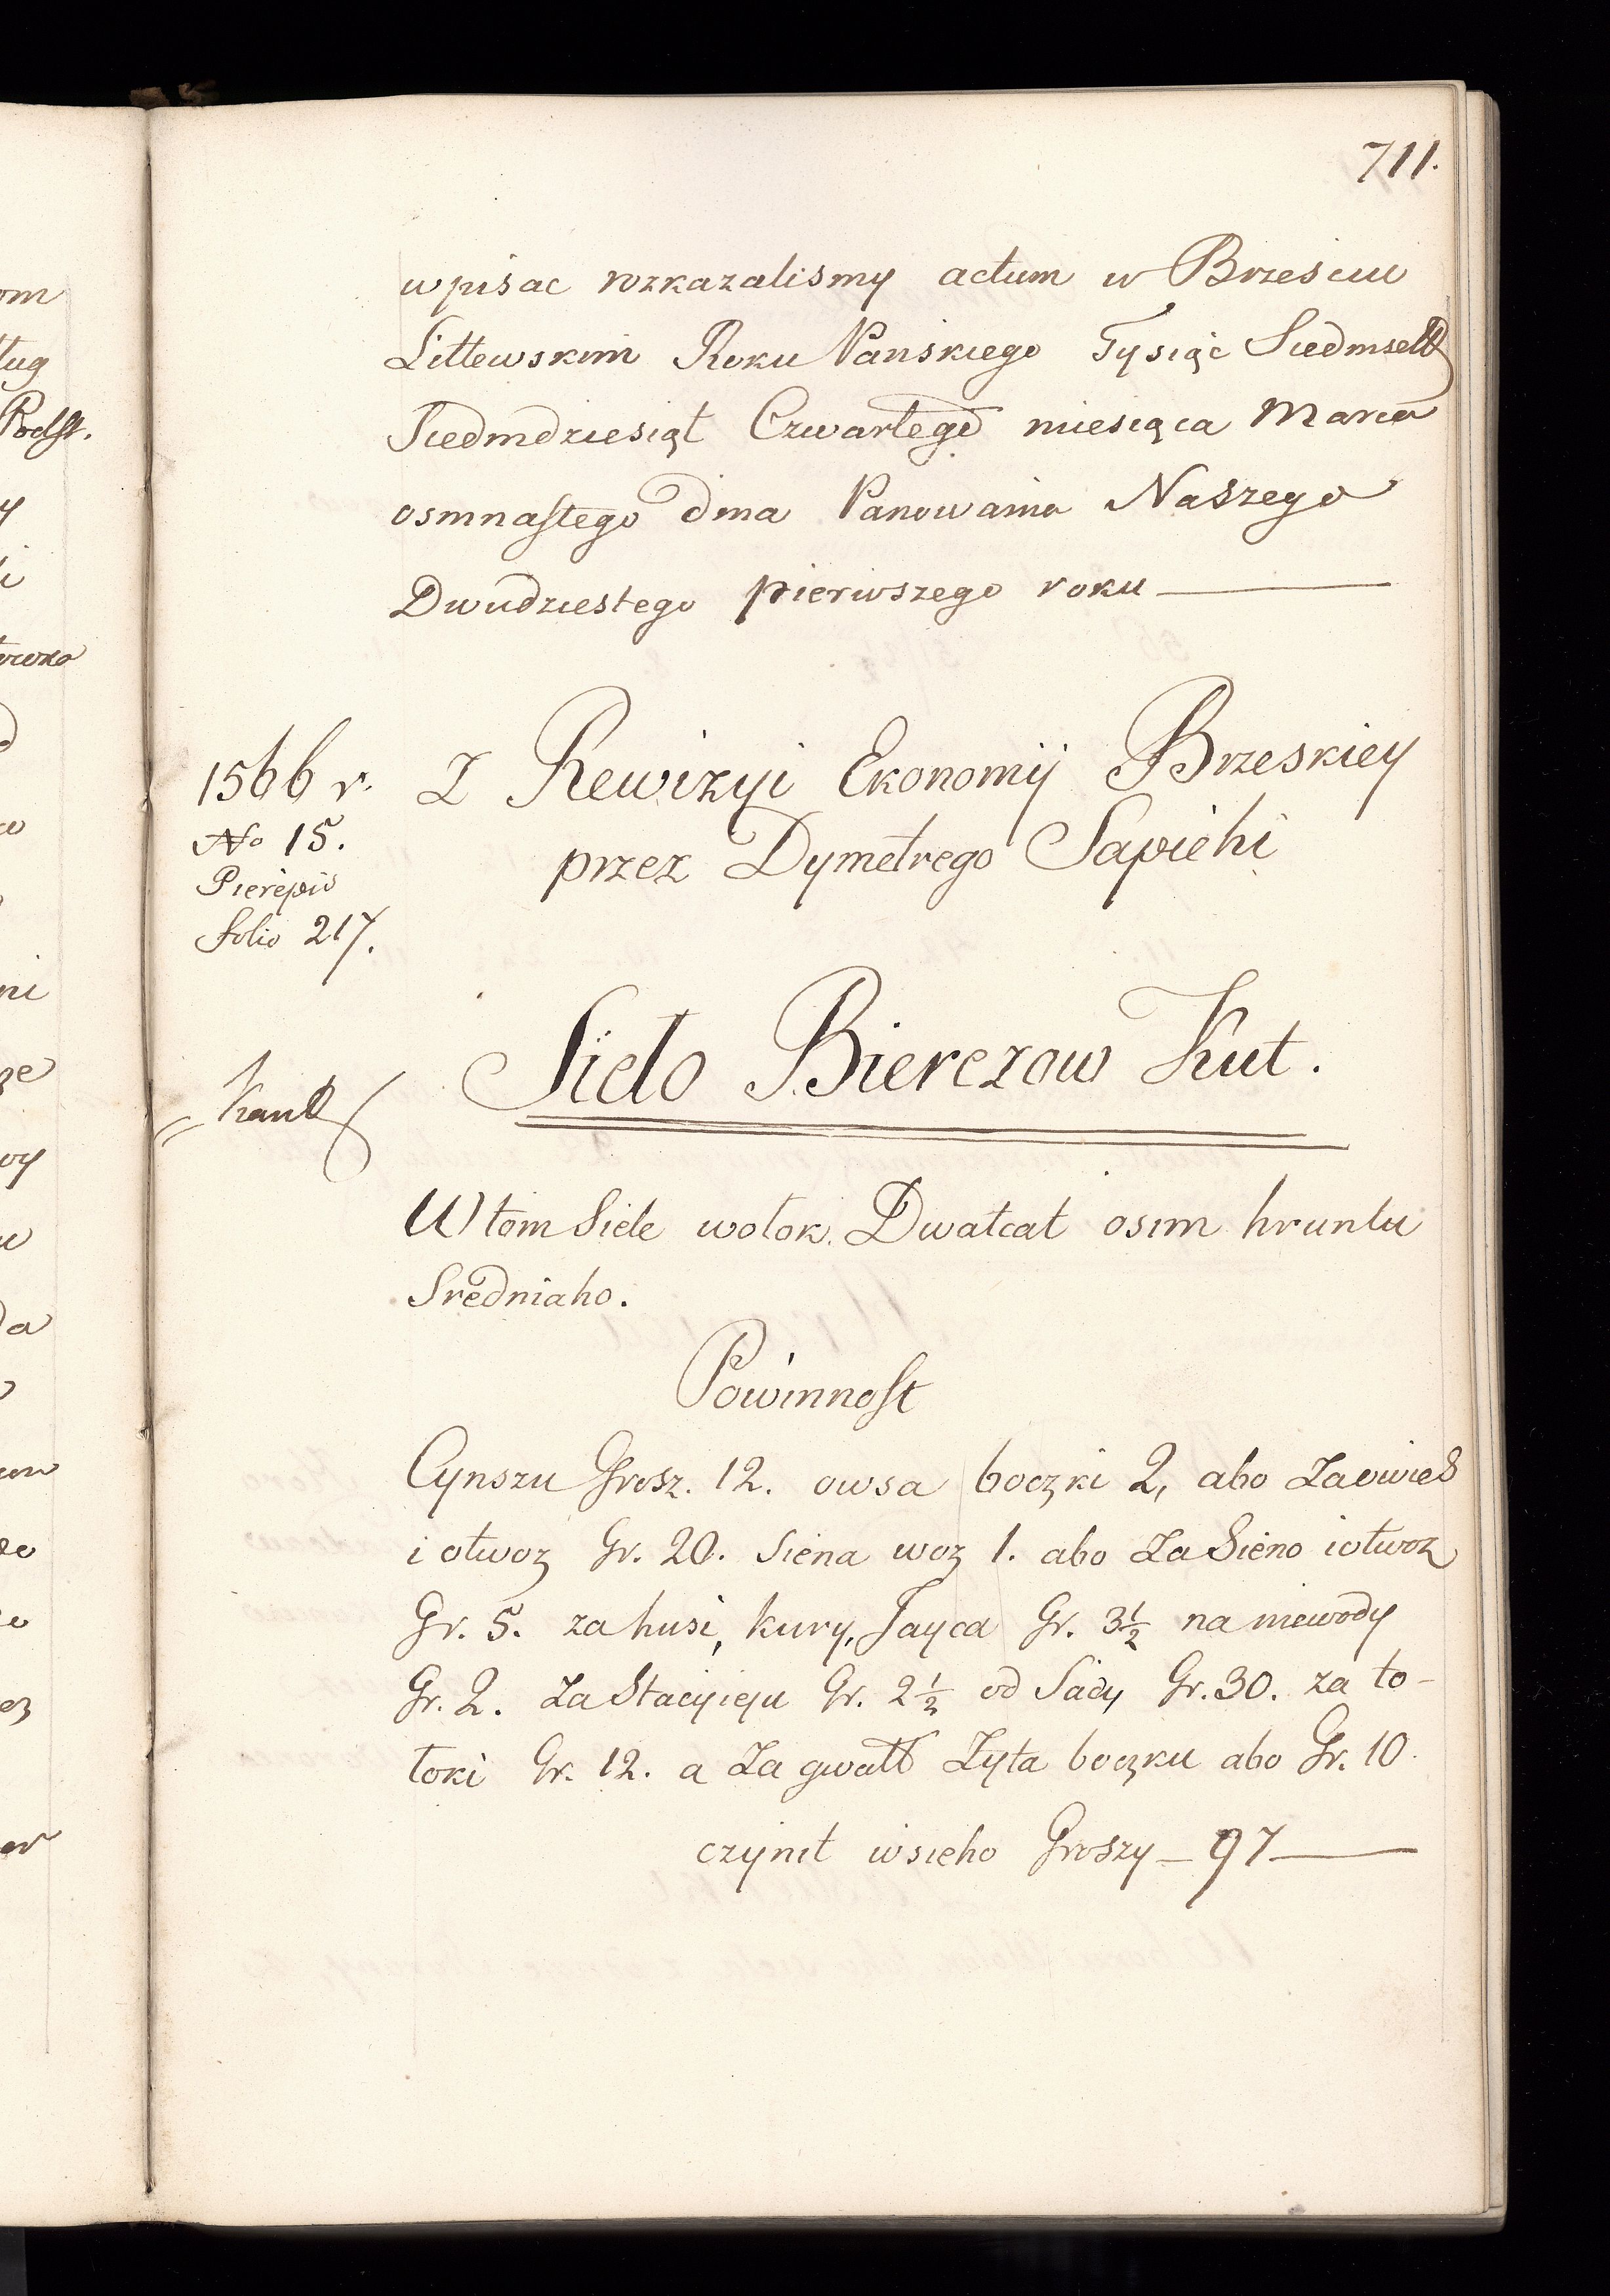 711.
wpisac rozkazalismy actum w Brzesciu
Littewskim Roku Panskiego Tysiąc Siedmsett
Siedmdziesiąt Czwartego miesiąca Marca
osmnastego dnia Panowania Naszego
Dwudziestego pierwszego roku
1566 r.
No 15.
Pierepis
folio 217.
Z Rewizyi Ekonomij Brzeskiey
przez Dymetrego Sapiehi
Sieło Bierezow Kut.
W tom Siele wołok Dwatcat osim hruntu
Sredniaho.
Powinnost
Cynszu Grosz. 12. owsa boczki 2, abo Za owies
i otwoz Gr. 20. Siena woz 1. abo Za Sieno i otwoz
Gr. 5. za husi, kury, Jayca Gr. 3½ na niewody
Gr. 2. Za Stacyieju Gr. 2½ od Sady Gr. 30. za to-
łoki Gr. 12. a Za gwałt Zyta boczku abo Gr. 10.
czynit wsieho Groszy 97